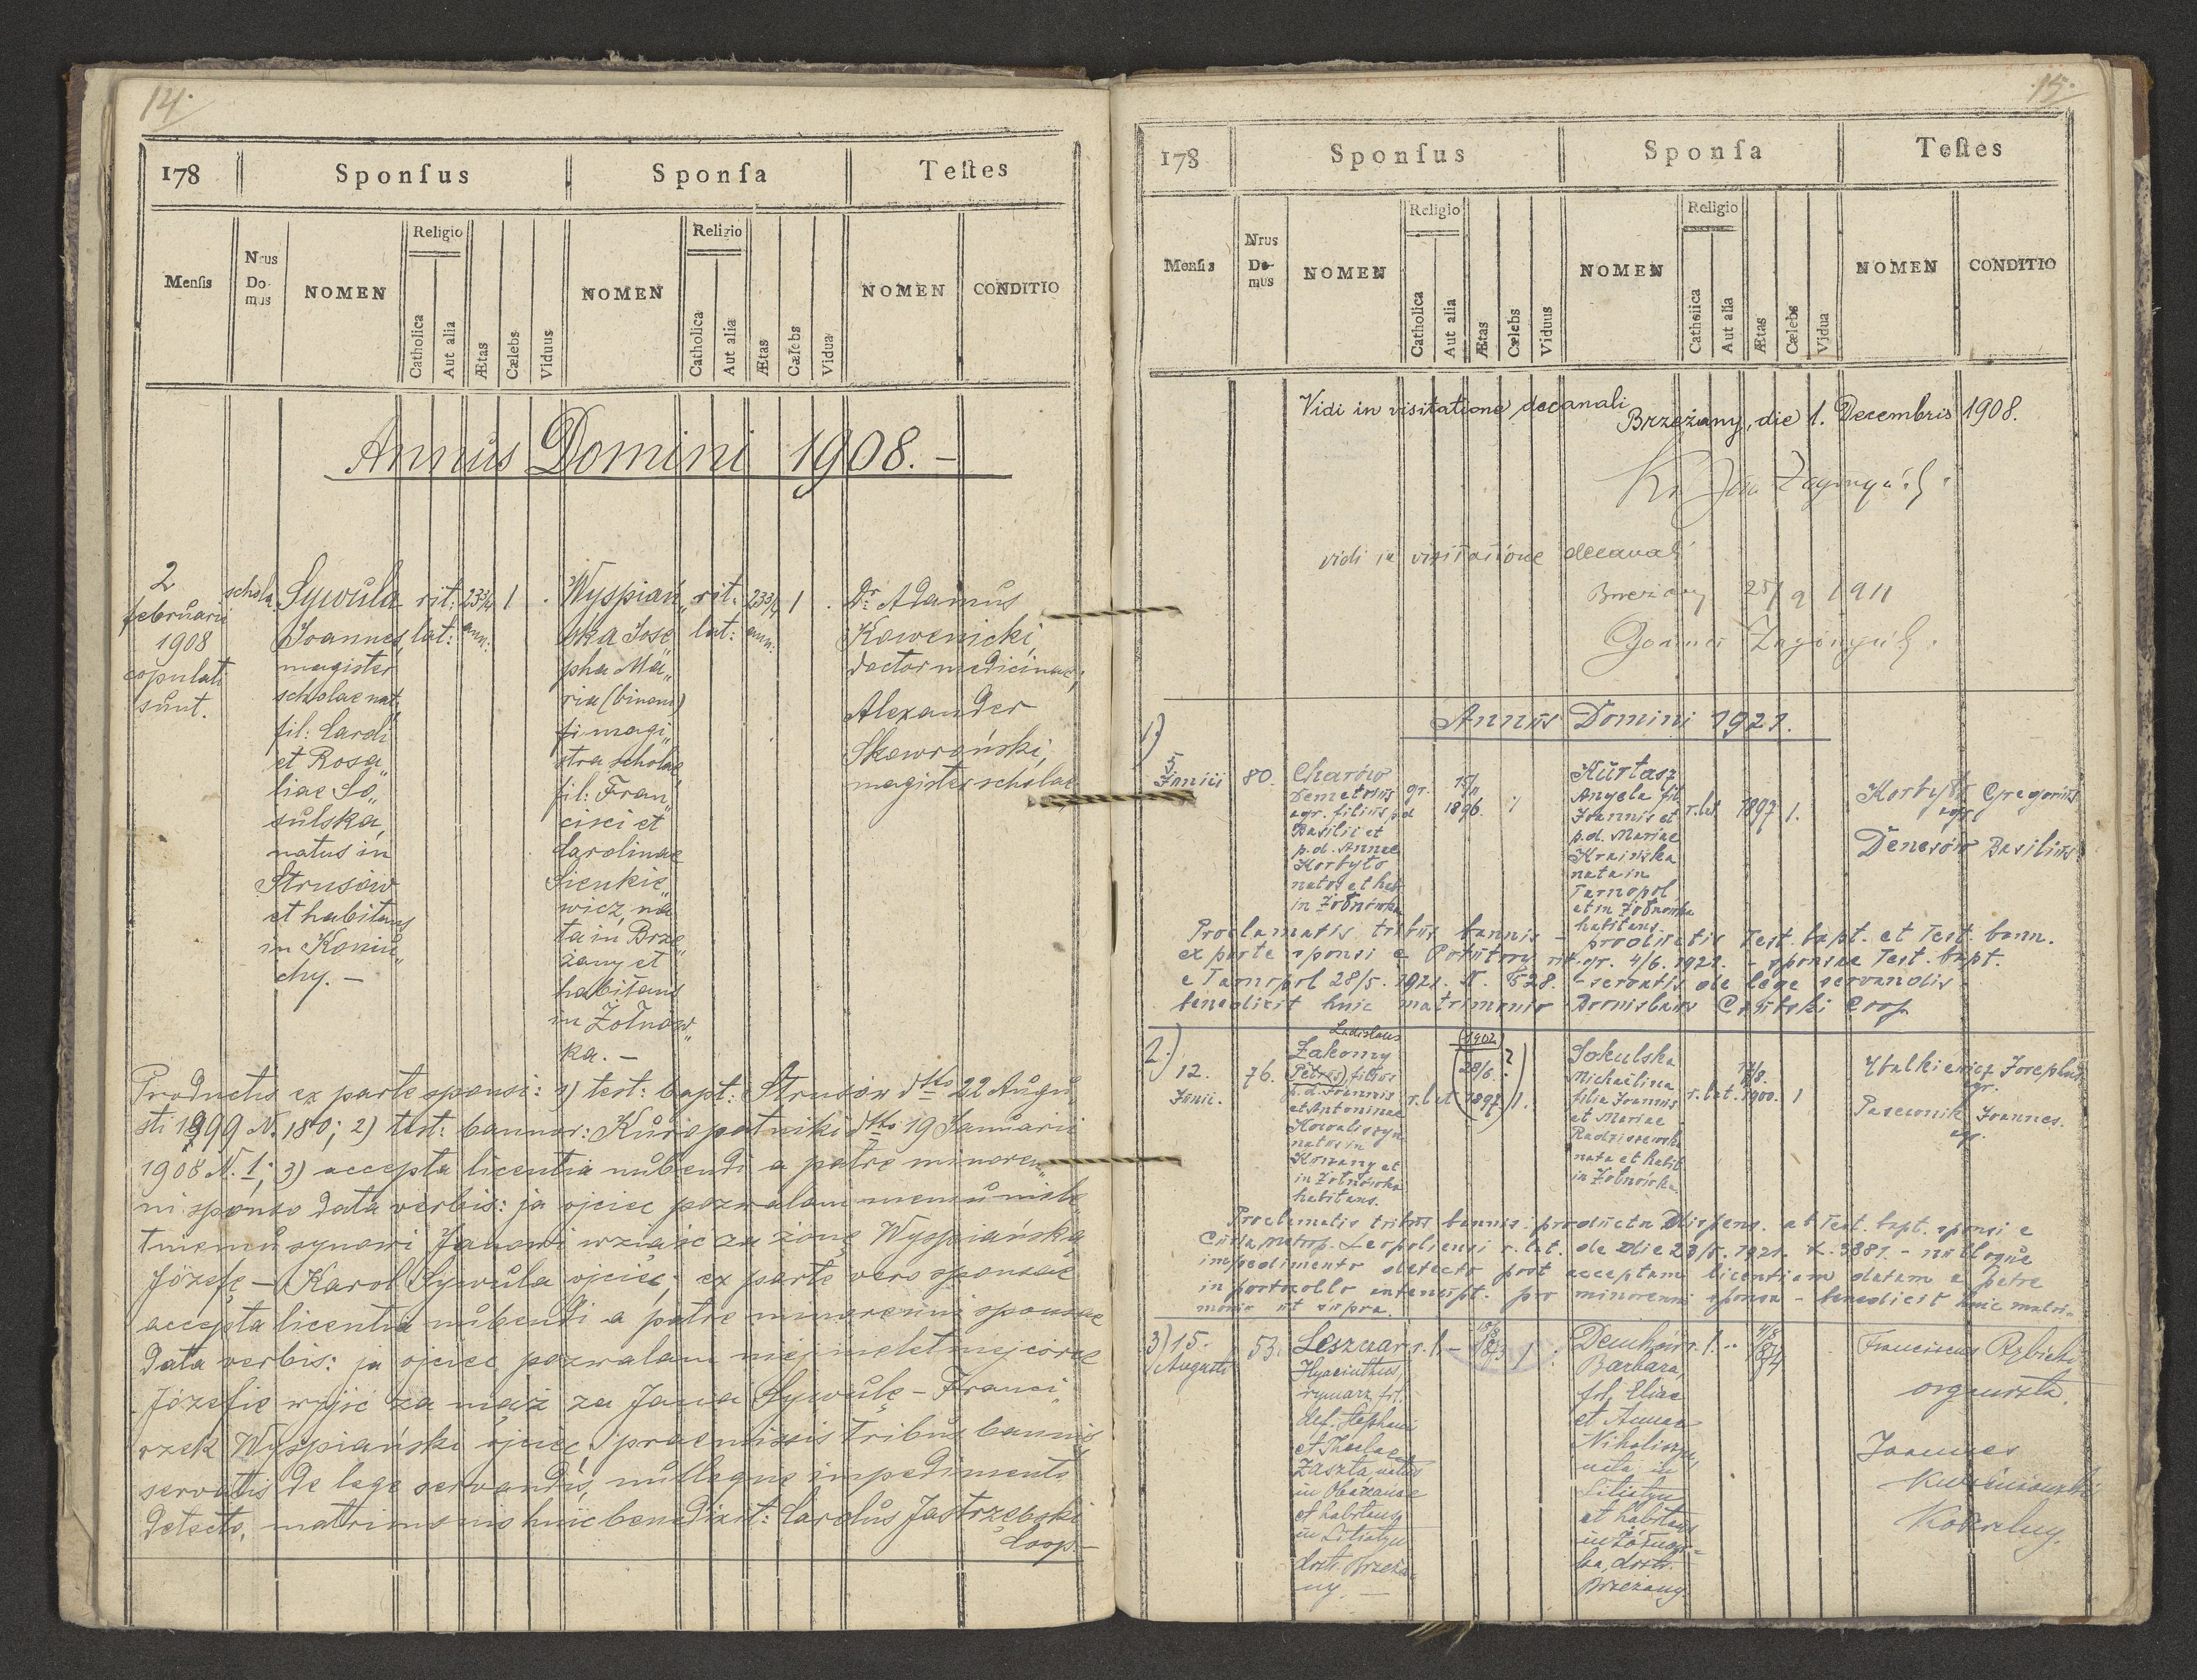 14.
178
Sponſus
Sponſa
Teſtes
Menſis
Nrus
Do-
mus
NOMEN
Religio
Catholica
Aut alia
Ætas
Cælebs
Viduus
NOMEN
Religio
Catholica
Aut alia
Ætas
Cælebs
Vidua
NOMEN
CONDITIO
Annus Domini 1908. –
2
februarii
1908
copulati
sunt.
schola
Sywula
Joannes,
magister
scholae nat,
fil: Caroli
et Rosa„
liae So„
sulska,
natus in
Strusów
et habitans
in Koniu„
chy. –
rit:
lat:
23¾
ann:
1
Wyspiań„
ska Jose„
pha Ma„
ria (binom)
fi magi„
stra scholae,
fil: Fran„
cisci et
Carolinae
Sienkie„
wicz, na„
ta in Brze„
żany et
habitans
in Żołnów„
ka. –
rit:
lat:
23¾
ann:
1
Dr Adamus
Kowenicki,
doctor medicinae;
Alexander
Skowroński,
magister scholae
Productis ex parte sponsi: 1) test: bapt: Strusów dtto 22 Augu„
sti 1899 N. 180; 2) test: bannor: Kuropatniki dtto 19 Januarii
1908 N. 1; 3) accepta licentia nubendi a patre minoren„
ni sponso data verbis: ja ojciec pozwalam memu niele„
tniemu synowi Janowi wziąść za żonę Wyspiańską
Józefę – Karol Sywula ojciec; ex parte vero sponsae
accepta licentia nubendi a patre minorenni sponsae
data verbis: ja ojciec pozwalam niepieletniej córce
Józefie wyjść za mąż za Jana Sywulę – Franci„
szek Wyspiański ojciec; praemissis tribus bannis,
servatis de lege servandis, nulloque impedimento
detecto, matrimonio huic benedixit: Carolus Jastrzębski
Coop. –
15.
178
Sponſus
Sponſa
Teſtes
Menſis
Nrus
Do-
mus
NOMEN
Religio
Catholica
Aut alia
Ætas
Cælebs
Viduus
NOMEN
Religio
Catholica
Aut alia
Ætas
Cælebs
Vidua
NOMEN
CONDITIO
Vidi in visitatione decanali
Brzeżany, die 1. Decembris 1908.
vidi in visitatione decanali
Brzeżany 25/9 1911
Annus Domini 1921.
1)
5
Junii
80.
Charów
Demetrius
agr. filius p.d.
Basilii et
p.d. Annae
Korbyło
natus et hab.
in Żołnówka
gr.
15/11
1896.
1
Kurtasz
Angela fil.
Joannis et
p.d. Mariae
Kraińska
nata in
Tarnopol
et in Żołnówka
habitans.
r. lat.
1897
1.
Korbyło Gregorius
agr.
Denesów Basilius
Proclamatis tribus bannis – productis Test. bapt. et Test. bann.
ex parte sponsi e Potutory rit. gr. 4/6. 1921. – sponsae Test. bapt.
e Tarnopol 28/5. 1921. N. 528. – servatis de lege servandis
benedixit huic matrimonio Bronislaus Coop
2.)
12.
Junii.
76.
Ladislaus
Zakomy
Petrus, filius
p.d. Joannis
et Antoninae
Kowaliszyn
natus in
Korzany et
in Żołnówka
habitans.
r. lat
1902
28/6.
1897
?
1.
Sokulska
Michaelina
filia Joannis
et Mariae
Radziszewska
nata et habit.
in Żołnówka.
r. lat.
/8.
1900.
1
Josephus
agr.
Pasewnik Joannes.
agr.
Proclamatis tribus bannis: producta Dispens. ab Test. bapt. sponsi e
Curia Metrop. Leopoliensi r. lat. de die 23/5. 1921. L. 3881. – nulloque
impedimento detecto post acceptam licentiam datam a patre
in protocollo pro minorenni sponsa – benedicit huic matri-
monio ut supra.
3) 15.
Augusti
53.
Leszczar
Hyacinthus,
rymarz, fil.
def. Stephani
et Theclae
Zaszta, natus
in
et habitans
in Litiatyn
distr. Brzeża-
ny. –
r. l. –
1873
1
Demków
Barbara,
fil. Eliae
et Annae
Nikoliszyn,
nata in
Litiatyn
et habitans
in Żołnów-
ka, distr.
Brzeżany
r. l.
1874
Franciscus Rybicki
organista.
Joannes